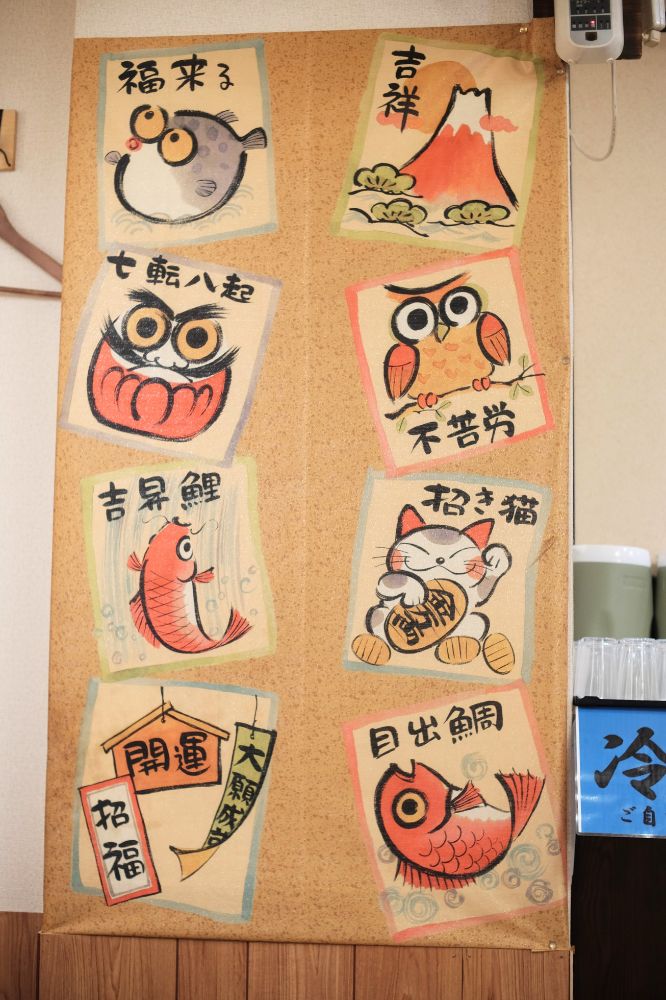 福来る
吉祥
七転八起
不苦労
吉昇鯉
招き猫
開運
大願成
招福
目出鯛
冷
ご自